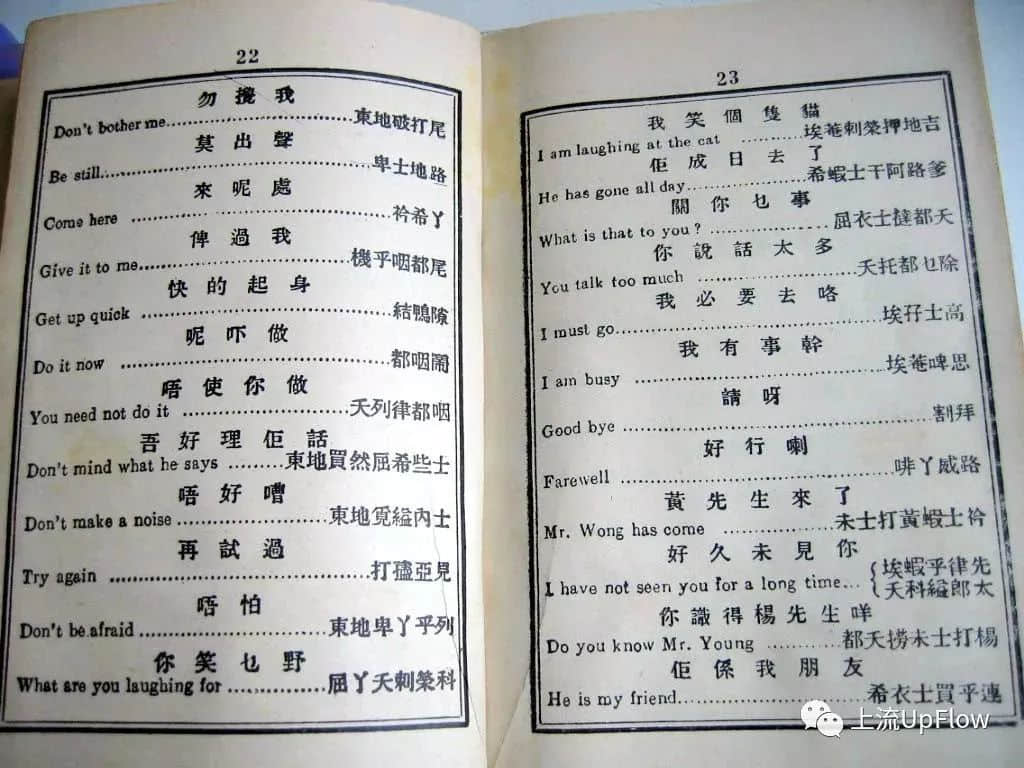 22
勿攪我
Don't bother me 東地破打尾
莫出聲
Be still 卑士地路
來呢處
Come here 衿希丫
俾過我
Give it to me 機乎咽都尾
快的起身
Get up quick 結鴨隙
呢吓做
Do it now 都咽鬧
唔使你做
You need not do it 夭列律都咽
吾好理佢話
Don't mind what he says 東地買然屈希些士
唔好嘈
Don't make a noise 東地覓縊內士
再試過
Try again 打亞見
唔怕
Don't be afraid 東地卑丫乎列
你笑乜野
What are you laughing for 屈丫夭剌榮科
23
我笑個隻貓
I am laughing at the cat 埃菴剌榮押地吉
佢成日去了
He has gone all day 希蝦士干阿路爹
關你乜事
What is that to you? 屈衣士撻都夭
你說話太多
You talk too much 夭托都乜除
我必要去咯
I must go 埃孖士高
我有事幹
I am busy 埃菴啤思
請呀
Good bye 割拜
好行喇
Farewell 啡丫威路
黃先生來了
Mr. Wong has come 未士打黃蝦士衿
好久未見你
I have not seen you for a long time... { 埃蝦乎律先
夭科縊郎太
你識得楊先生咩
Do you know Mr. Young 都夭撈未士打楊
佢係我朋友
He is my friend 希衣士買乎連
上流UpFlow